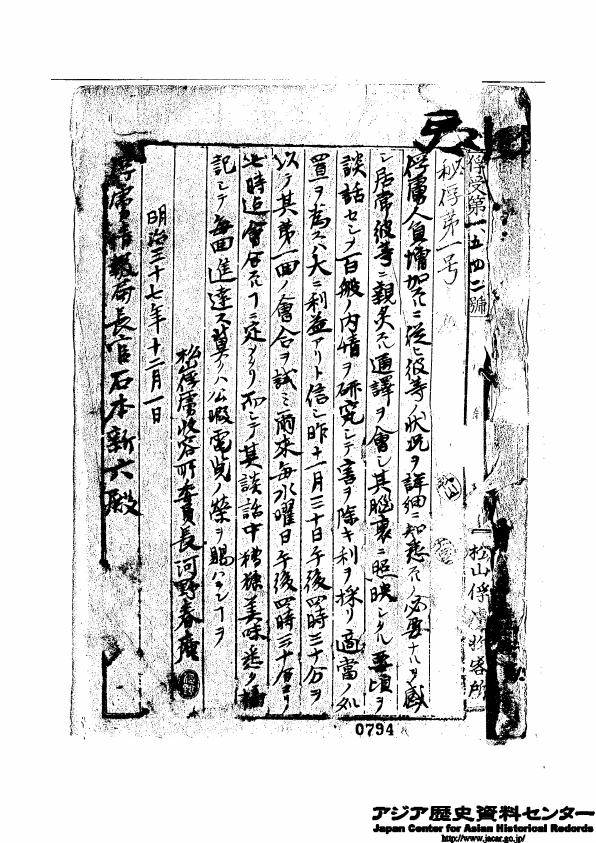 俘受第一五四二號
松山俘虜收容所
秘俘第一号
俘虜人員增加スルニ從ヒ彼等ノ狀況ヲ詳細ニ知悉スルノ必要ナルヲ感
シ居常彼等ニ親炙スル通譯ヲ會シ其腦裏ニ照映シタル要項ヲ
談話セシメ百般ノ内情ヲ研究シテ害ヲ除キ利ヲ採リ適當ノ処
置ヲ為スハ大ニ利益アリト信シ昨十一月三十日午後四時三十分ヲ
以テ其第一回ノ會合ヲ試ミ爾來每水曜日午後四時三十分ヨリ
七時迄會合スルコトニ定メタリ而シテ其談話中
記シテ每回進達ス冀クハ公暇電覧ノ榮ヲ賜ハランコトヲ
松山俘虜收容所委員長河野春庵
明治三十七年十二月一日
俘虜情報局長官石本新六殿
0794
アジア歴史資料センター
Japan Center for Asian Historical Records
http://www.jacar.go.jp/